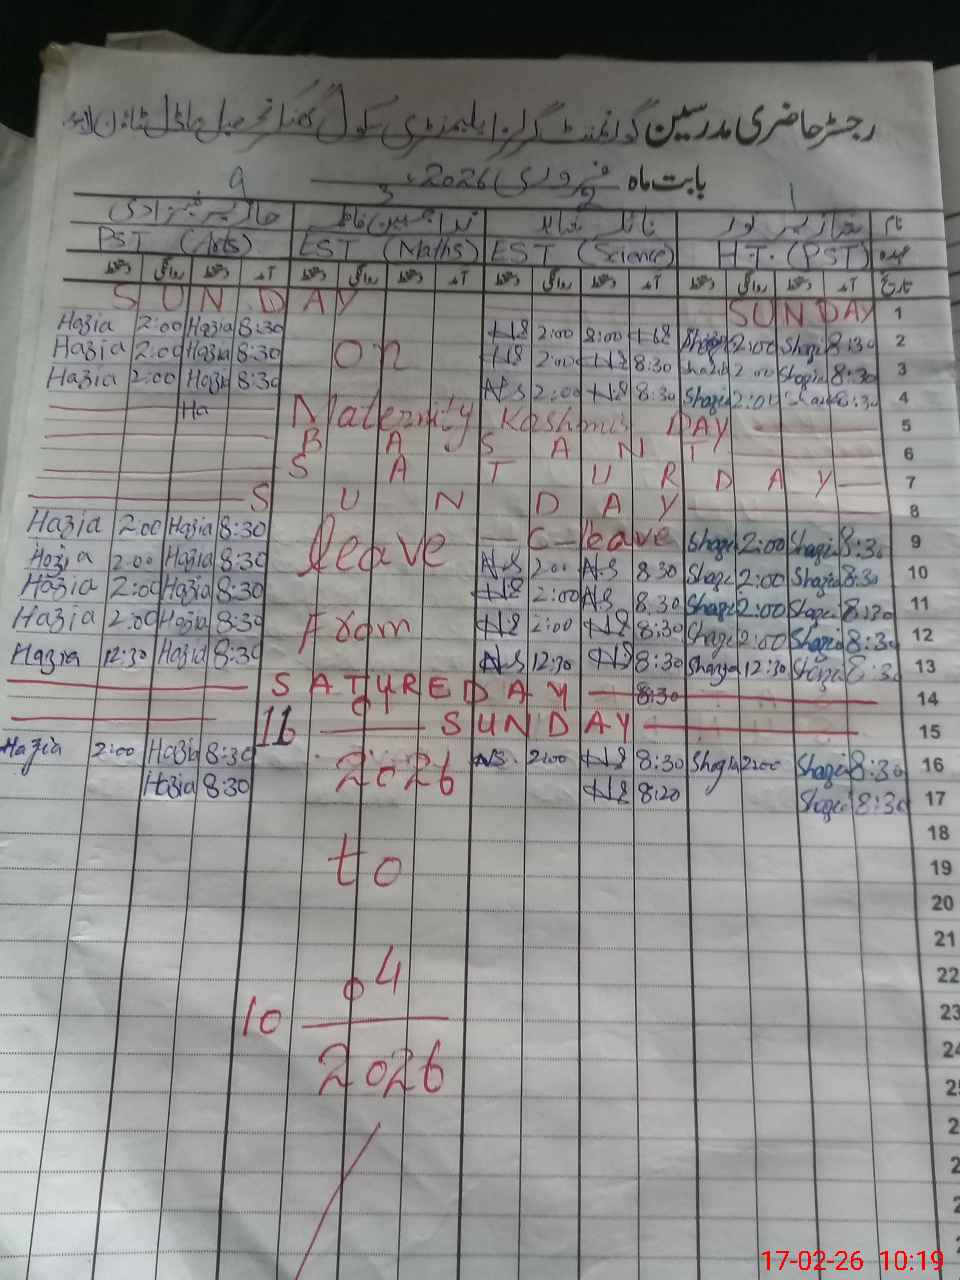 رجسٹر حاضری مدرسین گورنمنٹ گرلز ایلیمنٹری سکول
بابت ماہ فروری 2026ء
9 3 2 1
نام
PST (Arts) EST (Maths) EST (Science) H.T. (PST) عہدہ
دستخط روانگی دستخط آمد دستخط روانگی دستخط آمد دستخط روانگی دستخط آمد دستخط روانگی دستخط آمد تاریخ
SUNDAY SUNDAY 1
Hazia 2:00 Hazia 8:30 NS 2:00 8:00 NS Shazia 2:00 Shazia 8:30 2
Hazia 2:00 Hazia 8:30 on NS 2:00 NS 8:30 Shazia 2:00 Shazia 8:30 3
Hazia 2:00 Hazia 8:30 NS 2:00 NS 8:30 Shazia 2:00 Shazia 8:30 4
Ha Maternity Kashmir DAY 5
BASANT 6
SATURDAY 7
SUNDAY 8
Hazia 2:00 Hazia 8:30 leave C-leave Shazia 2:00 Shazia 8:30 9
Hazia 2:00 Hazia 8:30 NS 2:00 NS 8:30 Shazia 2:00 Shazia 8:30 10
Hazia 2:00 Hazia 8:30 NS 2:00 NS 8:30 Shazia 2:00 Shazia 8:30 11
Hazia 2:00 Hazia 8:30 From NS 2:00 NS 8:30 Shazia 2:00 Shazia 8:30 12
Hazia 12:30 Hazia 8:30 NS 12:30 NS 8:30 Shazia 12:30 Shazia 8:30 13
SATUREDAY 8:30 14
16 SUNDAY 15
Hazia 2:00 Hazia 8:30 2026 NS 2:00 NS 8:30 Shazia 2:00 Shazia 8:30 16
Hazia 8:30 NS 8:20 Shazia 8:30 17
18
to 19
20
21
.4 22
10 23
24
2026 25
17-02-26 10:19